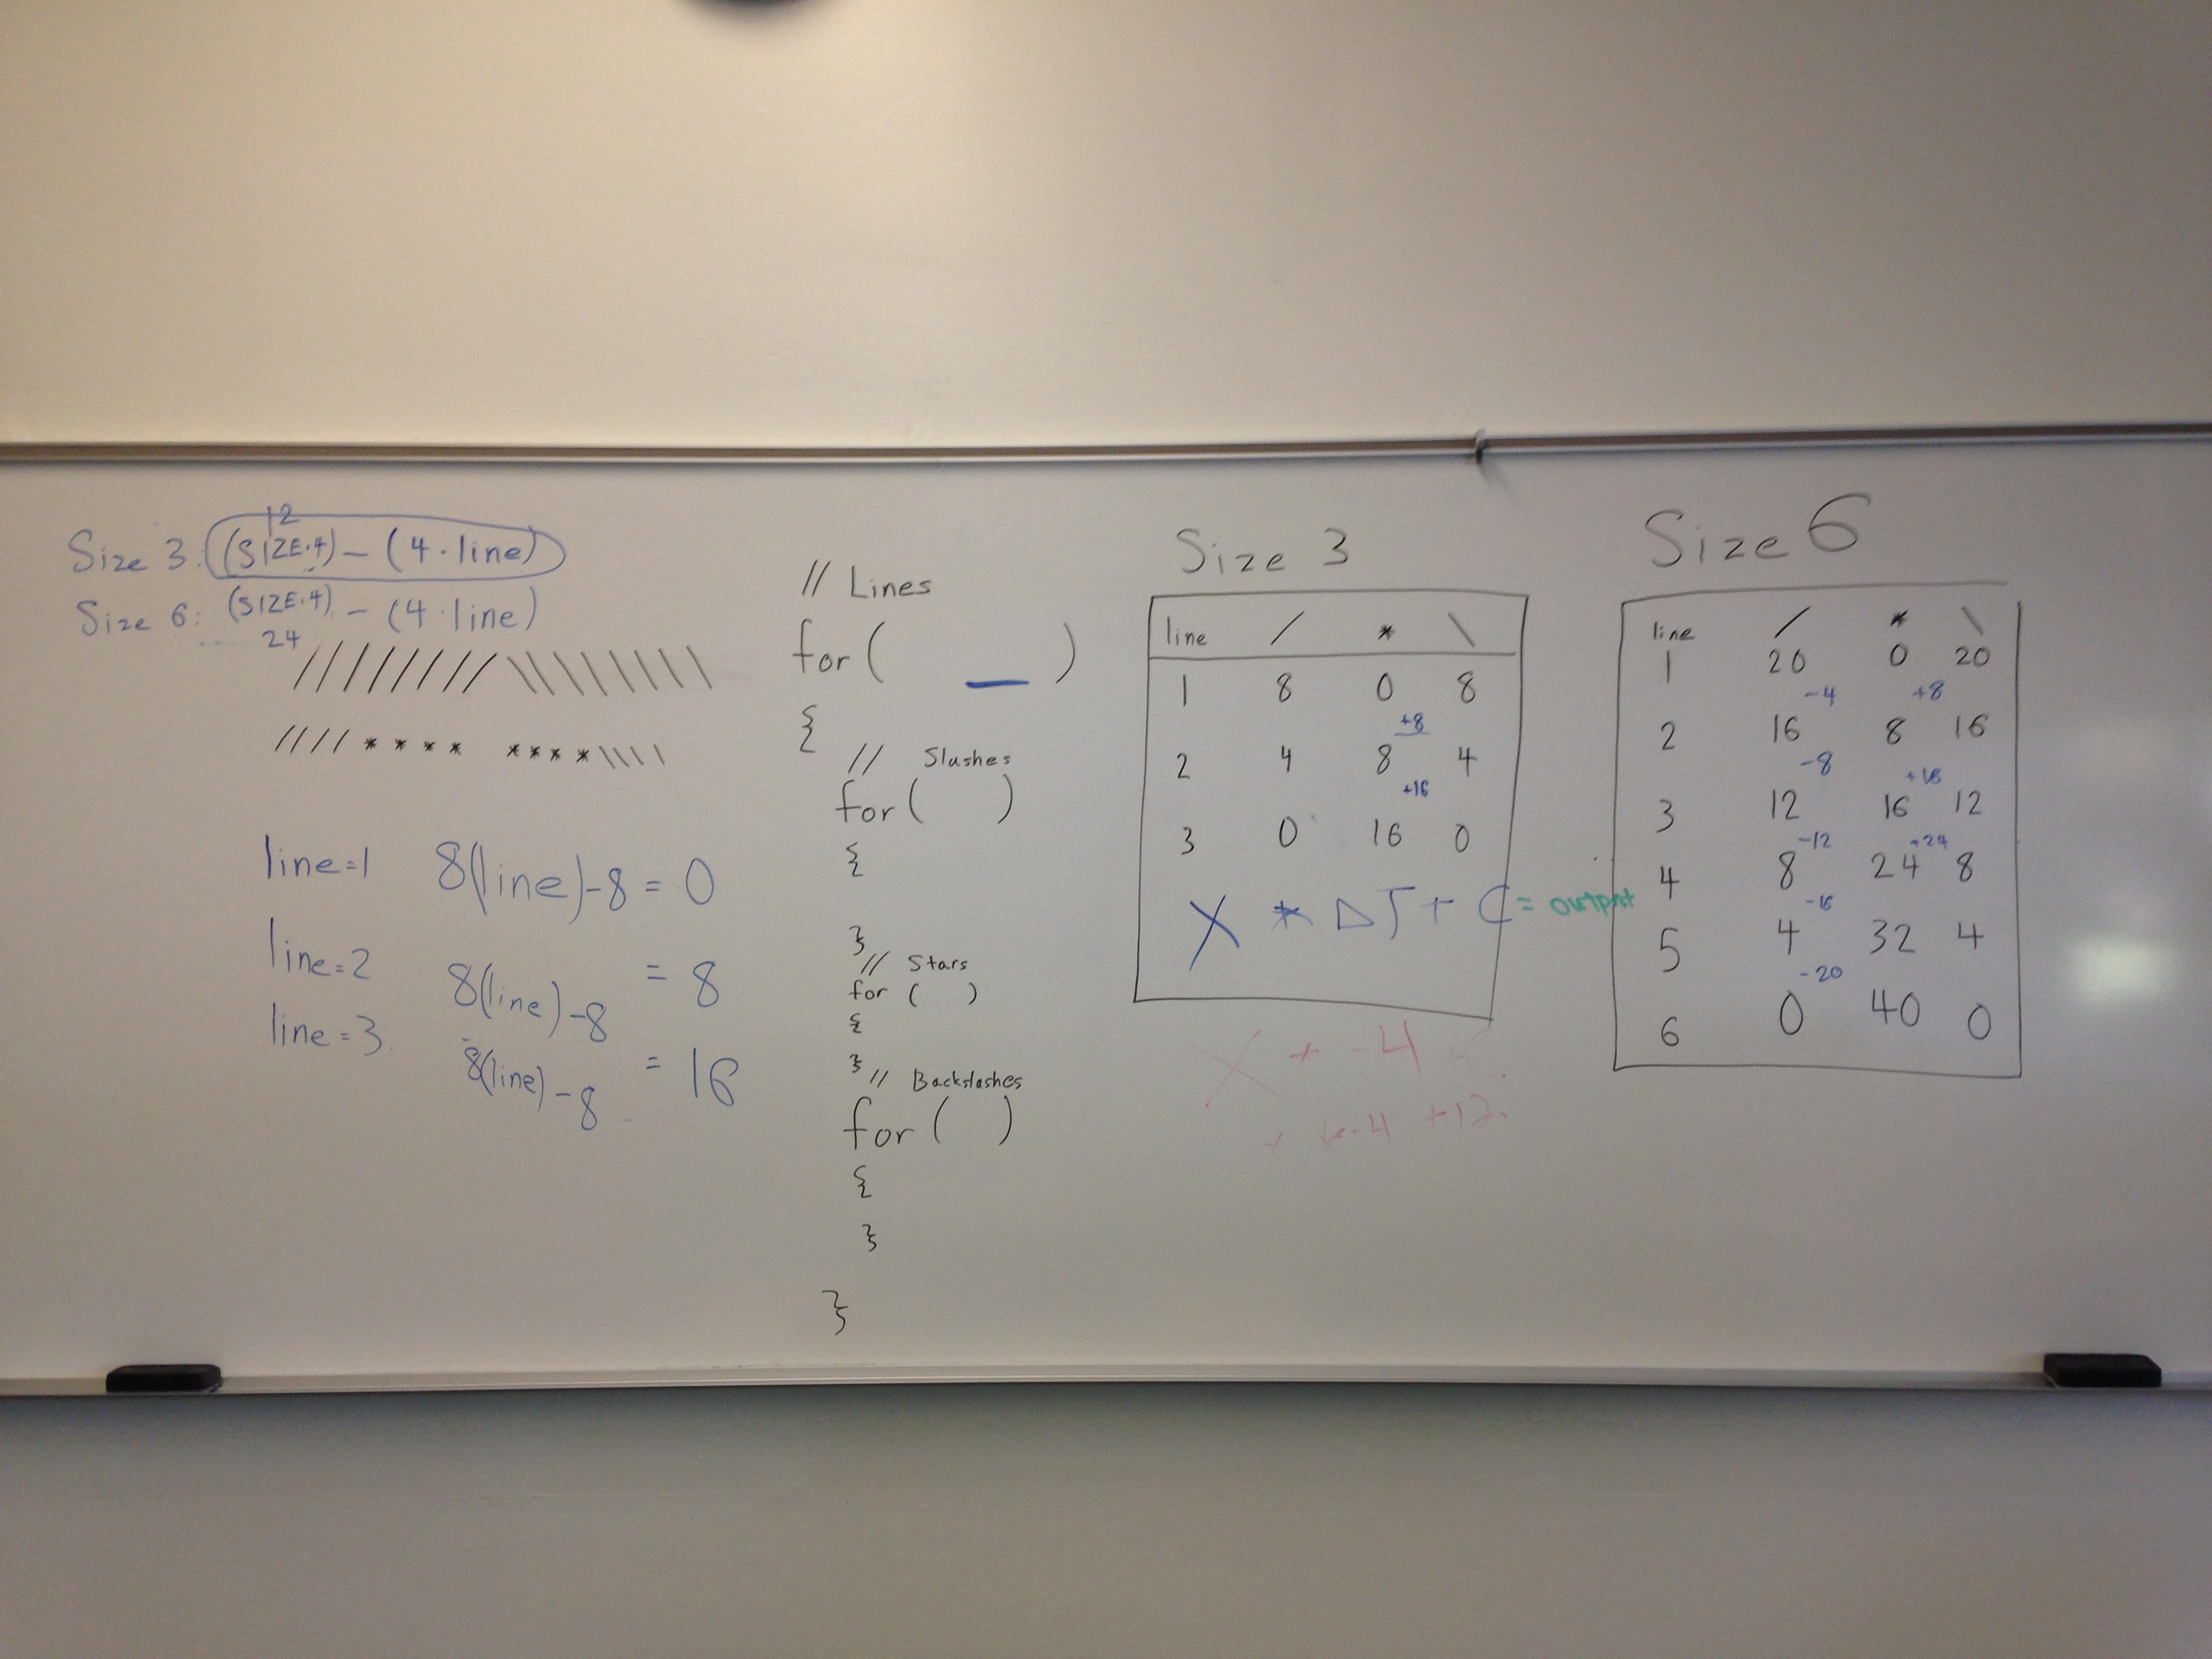 12
Size 3: (SIZE·4) - (4·line)
Size 6: (SIZE·4) - (4·line)
24
////////\\\\\\\\
////**** ****\\\\
line=1 8(line)-8 = 0
line=2 8(line)-8 = 8
line=3. 8(line)-8 = 16
// Lines
for ( _ )
{
// Slashes
for ( )
{
}
// Stars
for ( )
{
}
// Backslashes
for ( )
{
}
}
Size 3
line / * \
1 8 0 8
+8
2 4 8 4
+16
3 0 16 0
X * ΔT + C = output
X * -4
-4 +12
Size 6
line / * \
1 20 0 20
-4 +8
2 16 8 16
-8 +16
3 12 16 12
-12 +24
4 8 24 8
-16
5 4 32 4
-20
6 0 40 0